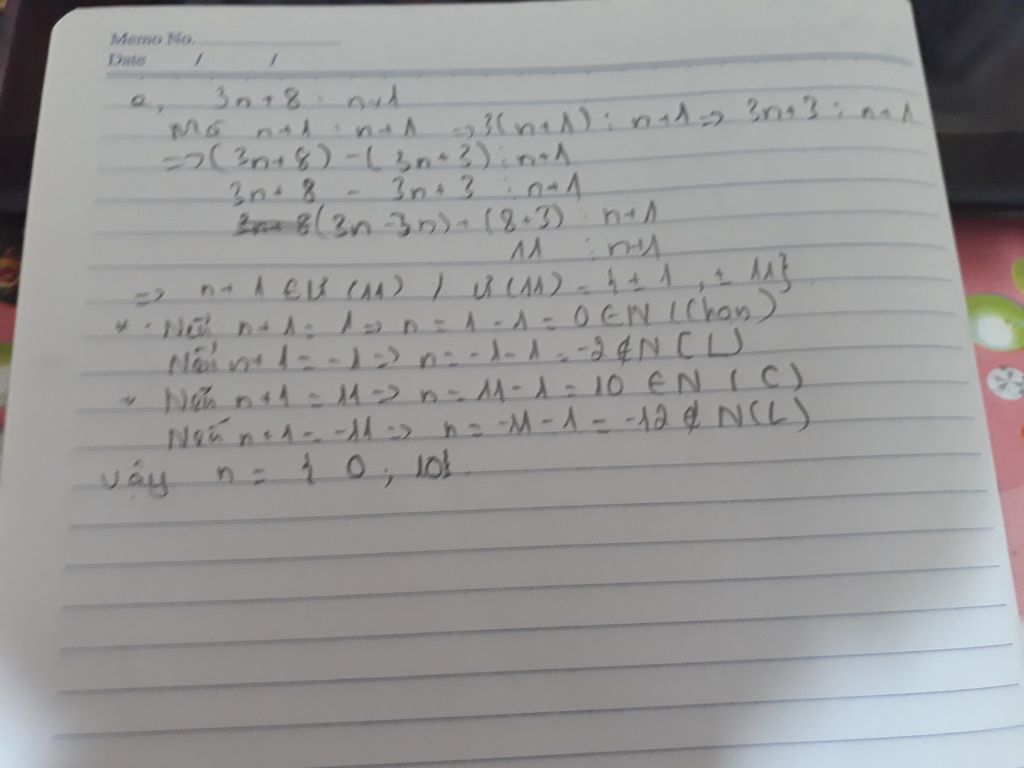 Memo No.
Date / /
a, 3n+8 ⋮ n+1
Mà n+1 ⋮ n+1 => 3(n+1) ⋮ n+1 => 3n+3 ⋮ n+1
=> (3n+8) - (3n+3) ⋮ n+1
3n+8 - 3n+3 ⋮ n+1
(3n-3n)+(8+3) ⋮ n+1
11 ⋮ n+1
=> n+1 ∈ Ư (11) / Ư (11) = {±1, ±11}
* Nếu n+1=1 => n=1-1=0 ∈ N (Chọn)
Nếu n+1=-1 => n=-1-1=-2 ∉ N (L)
* Nếu n+1=11 => n=11-1=10 ∈ N (C)
Nếu n+1=-11 => n=-11-1=-12 ∉ N (L)
vậy n = { 0 ; 10}